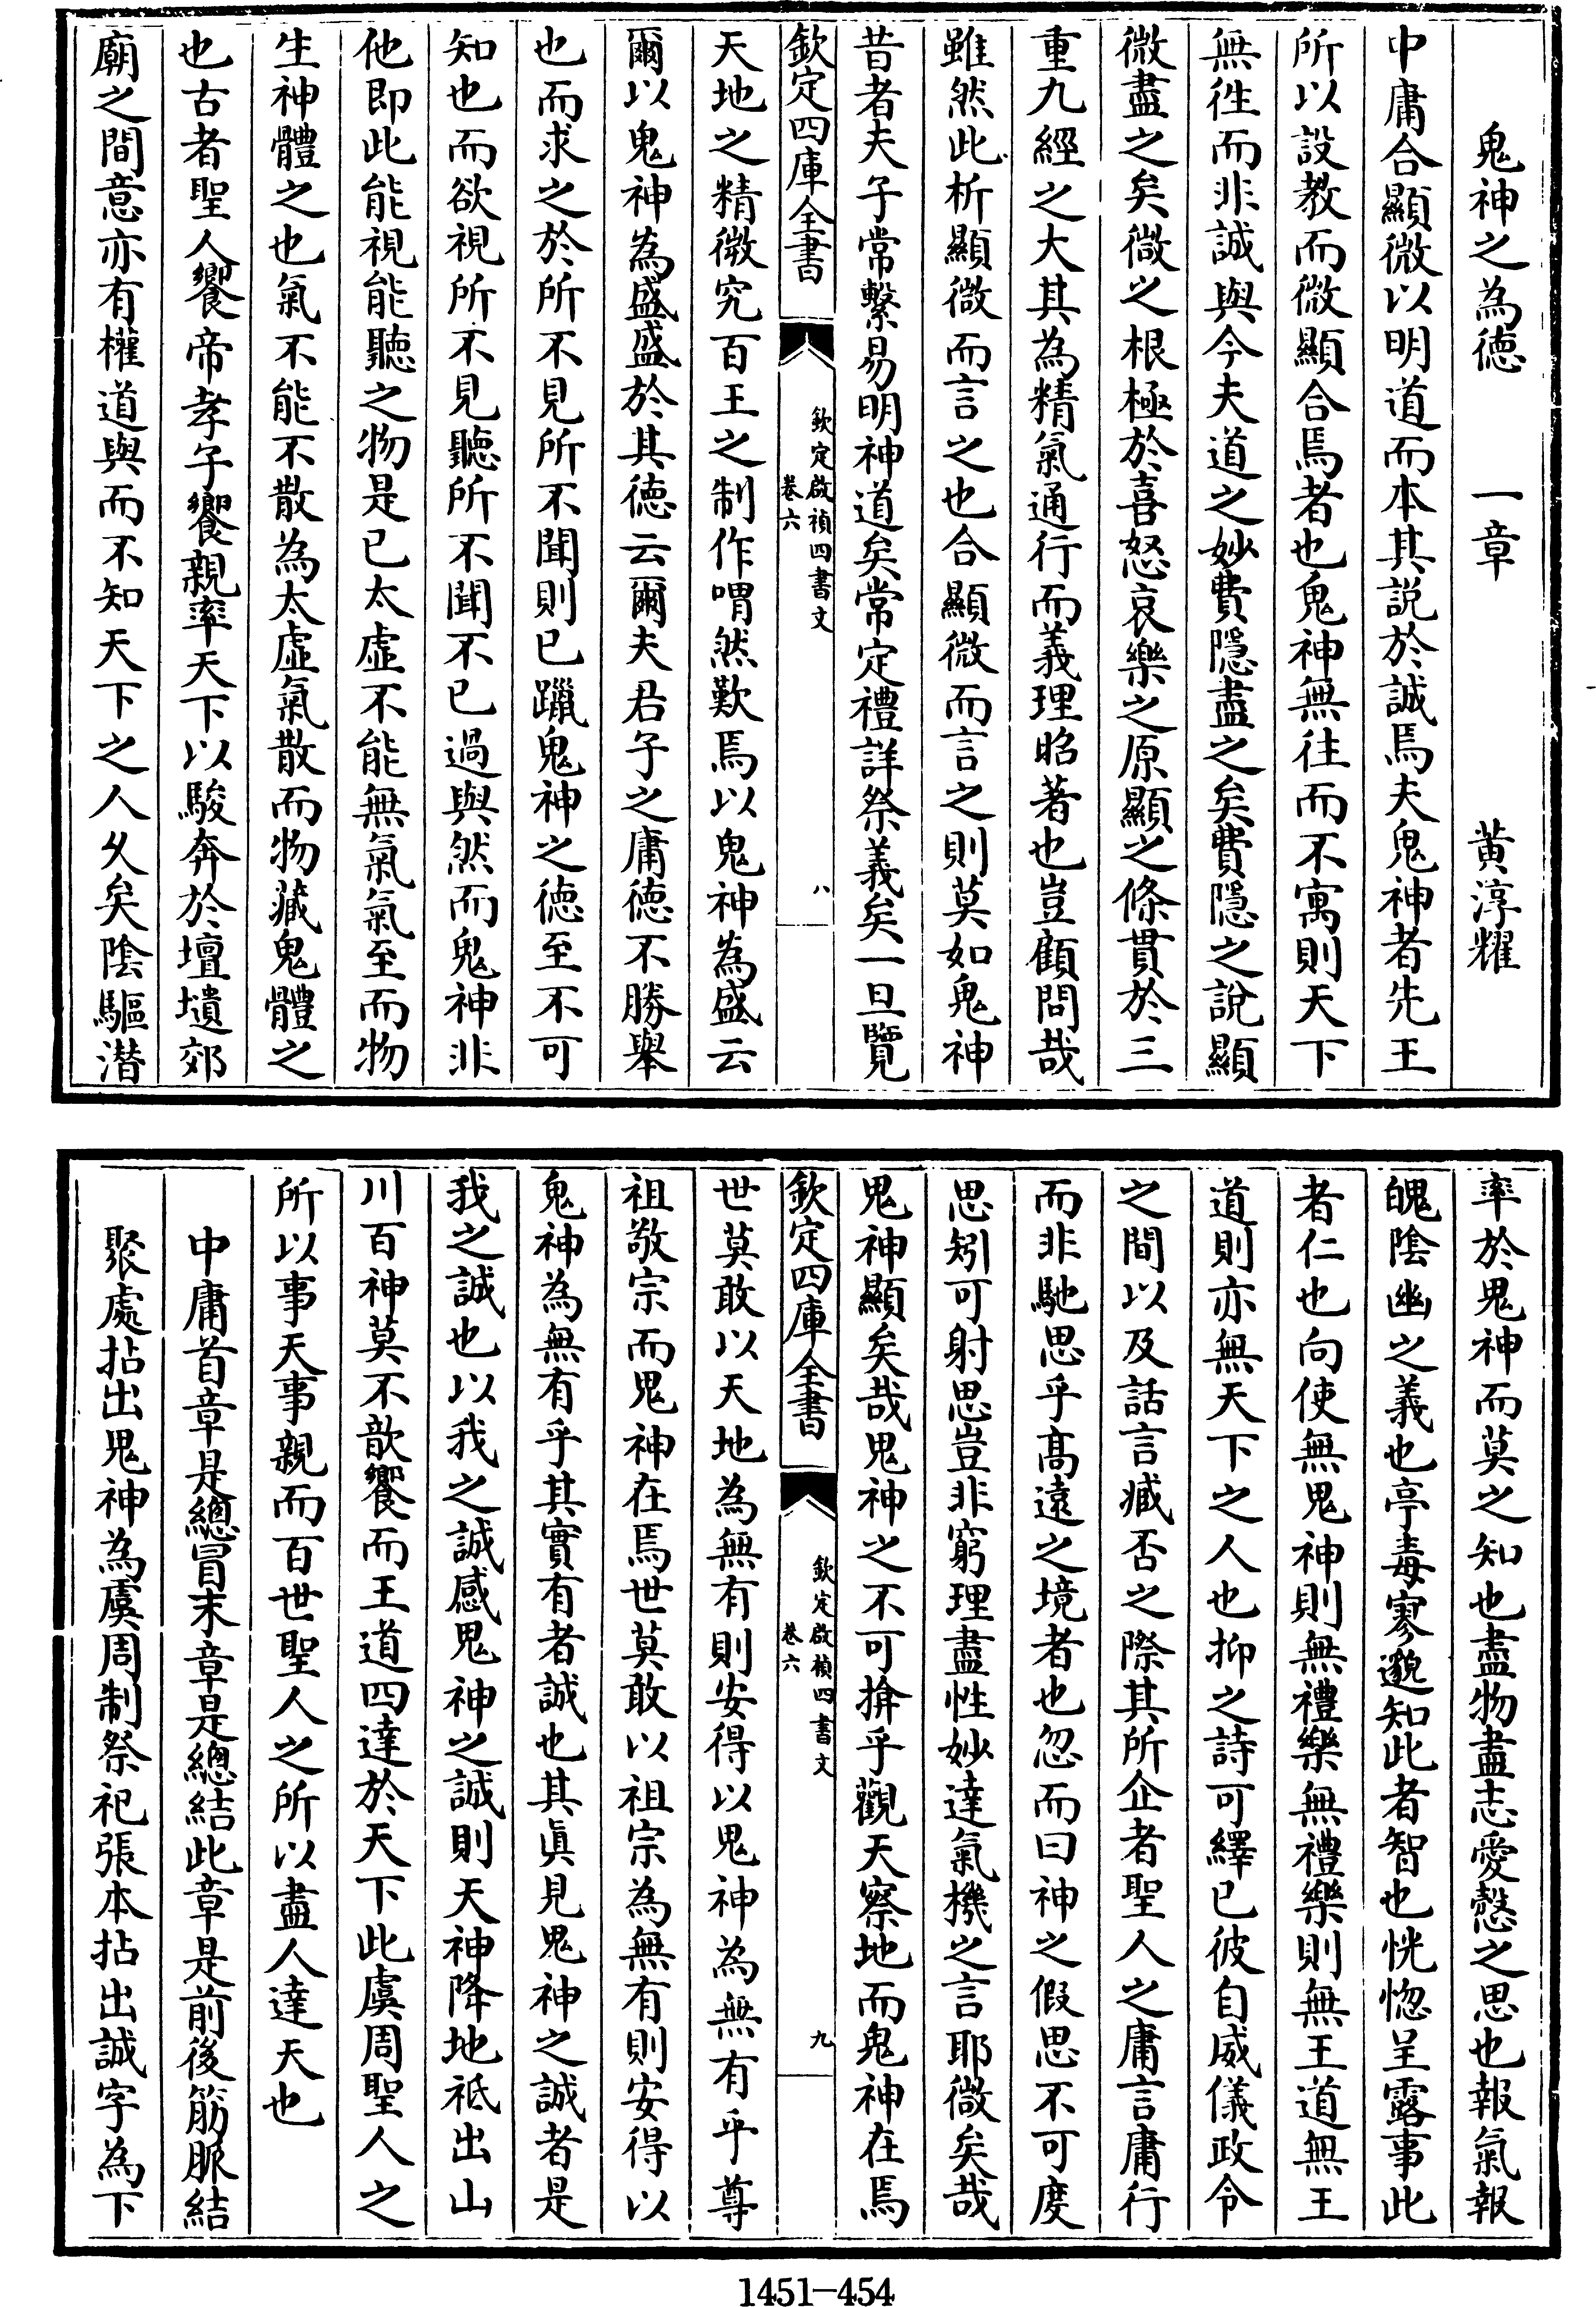 鬼神之為徳　一章　黄淳耀
中庸合顯微以明道而本其説於誠焉夫鬼神者先王
所以設教而微顯合焉者也鬼神無往而不寓則天下
無徃而非誠與今夫道之妙費隱盡之矣費隱之說顯
微盡之矣微之根極於喜怒哀樂之原顯之條貫於三
重九經之大其為精氣通行而義理昭著也豈顧問哉
雖然此析顯微而言之也合顯微而言之則莫如鬼神
昔者夫子常繫易明神道矣常定禮詳祭義矣一旦覽
欽定四庫全書
欽定啟禎四書文
卷六
八
天地之精微究百王之制作喟然歎焉以鬼神為盛云
爾以鬼神為盛盛於其徳云爾夫君子之庸徳不勝舉
也而求之於所不見所不聞則已躐鬼神之徳至不可
知也而欲視所不見聽所不聞不已過與然而鬼神非
他即此能視能聽之物是已太虛不能無氣氣至而物
生神體之也氣不能不散為太虛氣散而物藏鬼體之
也古者聖人饗帝孝子饗親率天下以駿奔於壇壝郊
廟之間意亦有權道與而不知天下之人久矣陰驅潜
率於鬼神而莫之知也盡物盡志愛慤之思也報氣報
魄陰幽之義也亭毒寥邈知此者智也恍惚呈露事此
者仁也向使無鬼神則無禮樂無禮樂則無王道無王
道則亦無天下之人也抑之詩可繹已彼自威儀政令
之間以及話言臧否之際其所企者聖人之庸言庸行
而非馳思乎髙遠之境者也忽而曰神之假思不可度
思矧可射思豈非窮理盡性妙達氣機之言耶微矣哉
鬼神顯矣哉鬼神之不可揜乎觀天察地而鬼神在焉
欽定四庫全書
欽定啟禎四書文
卷六
九
世莫敢以天地為無有則安得以鬼神為無有乎尊
祖敬宗而鬼神在焉世莫敢以祖宗為無有則安得以
鬼神為無有乎其實有者誠也其眞見鬼神之誠者是
我之誠也以我之誠感鬼神之誠則天神降地祗出山
川百神莫不歆饗而王道四達於天下此虞周聖人之
所以事天事親而百世聖人之所以盡人達天也
中庸首章是總冒末章是總結此章是前後筋脈結
聚處拈出鬼神為虞周制祭祀張本拈出誠字為下
1451-454